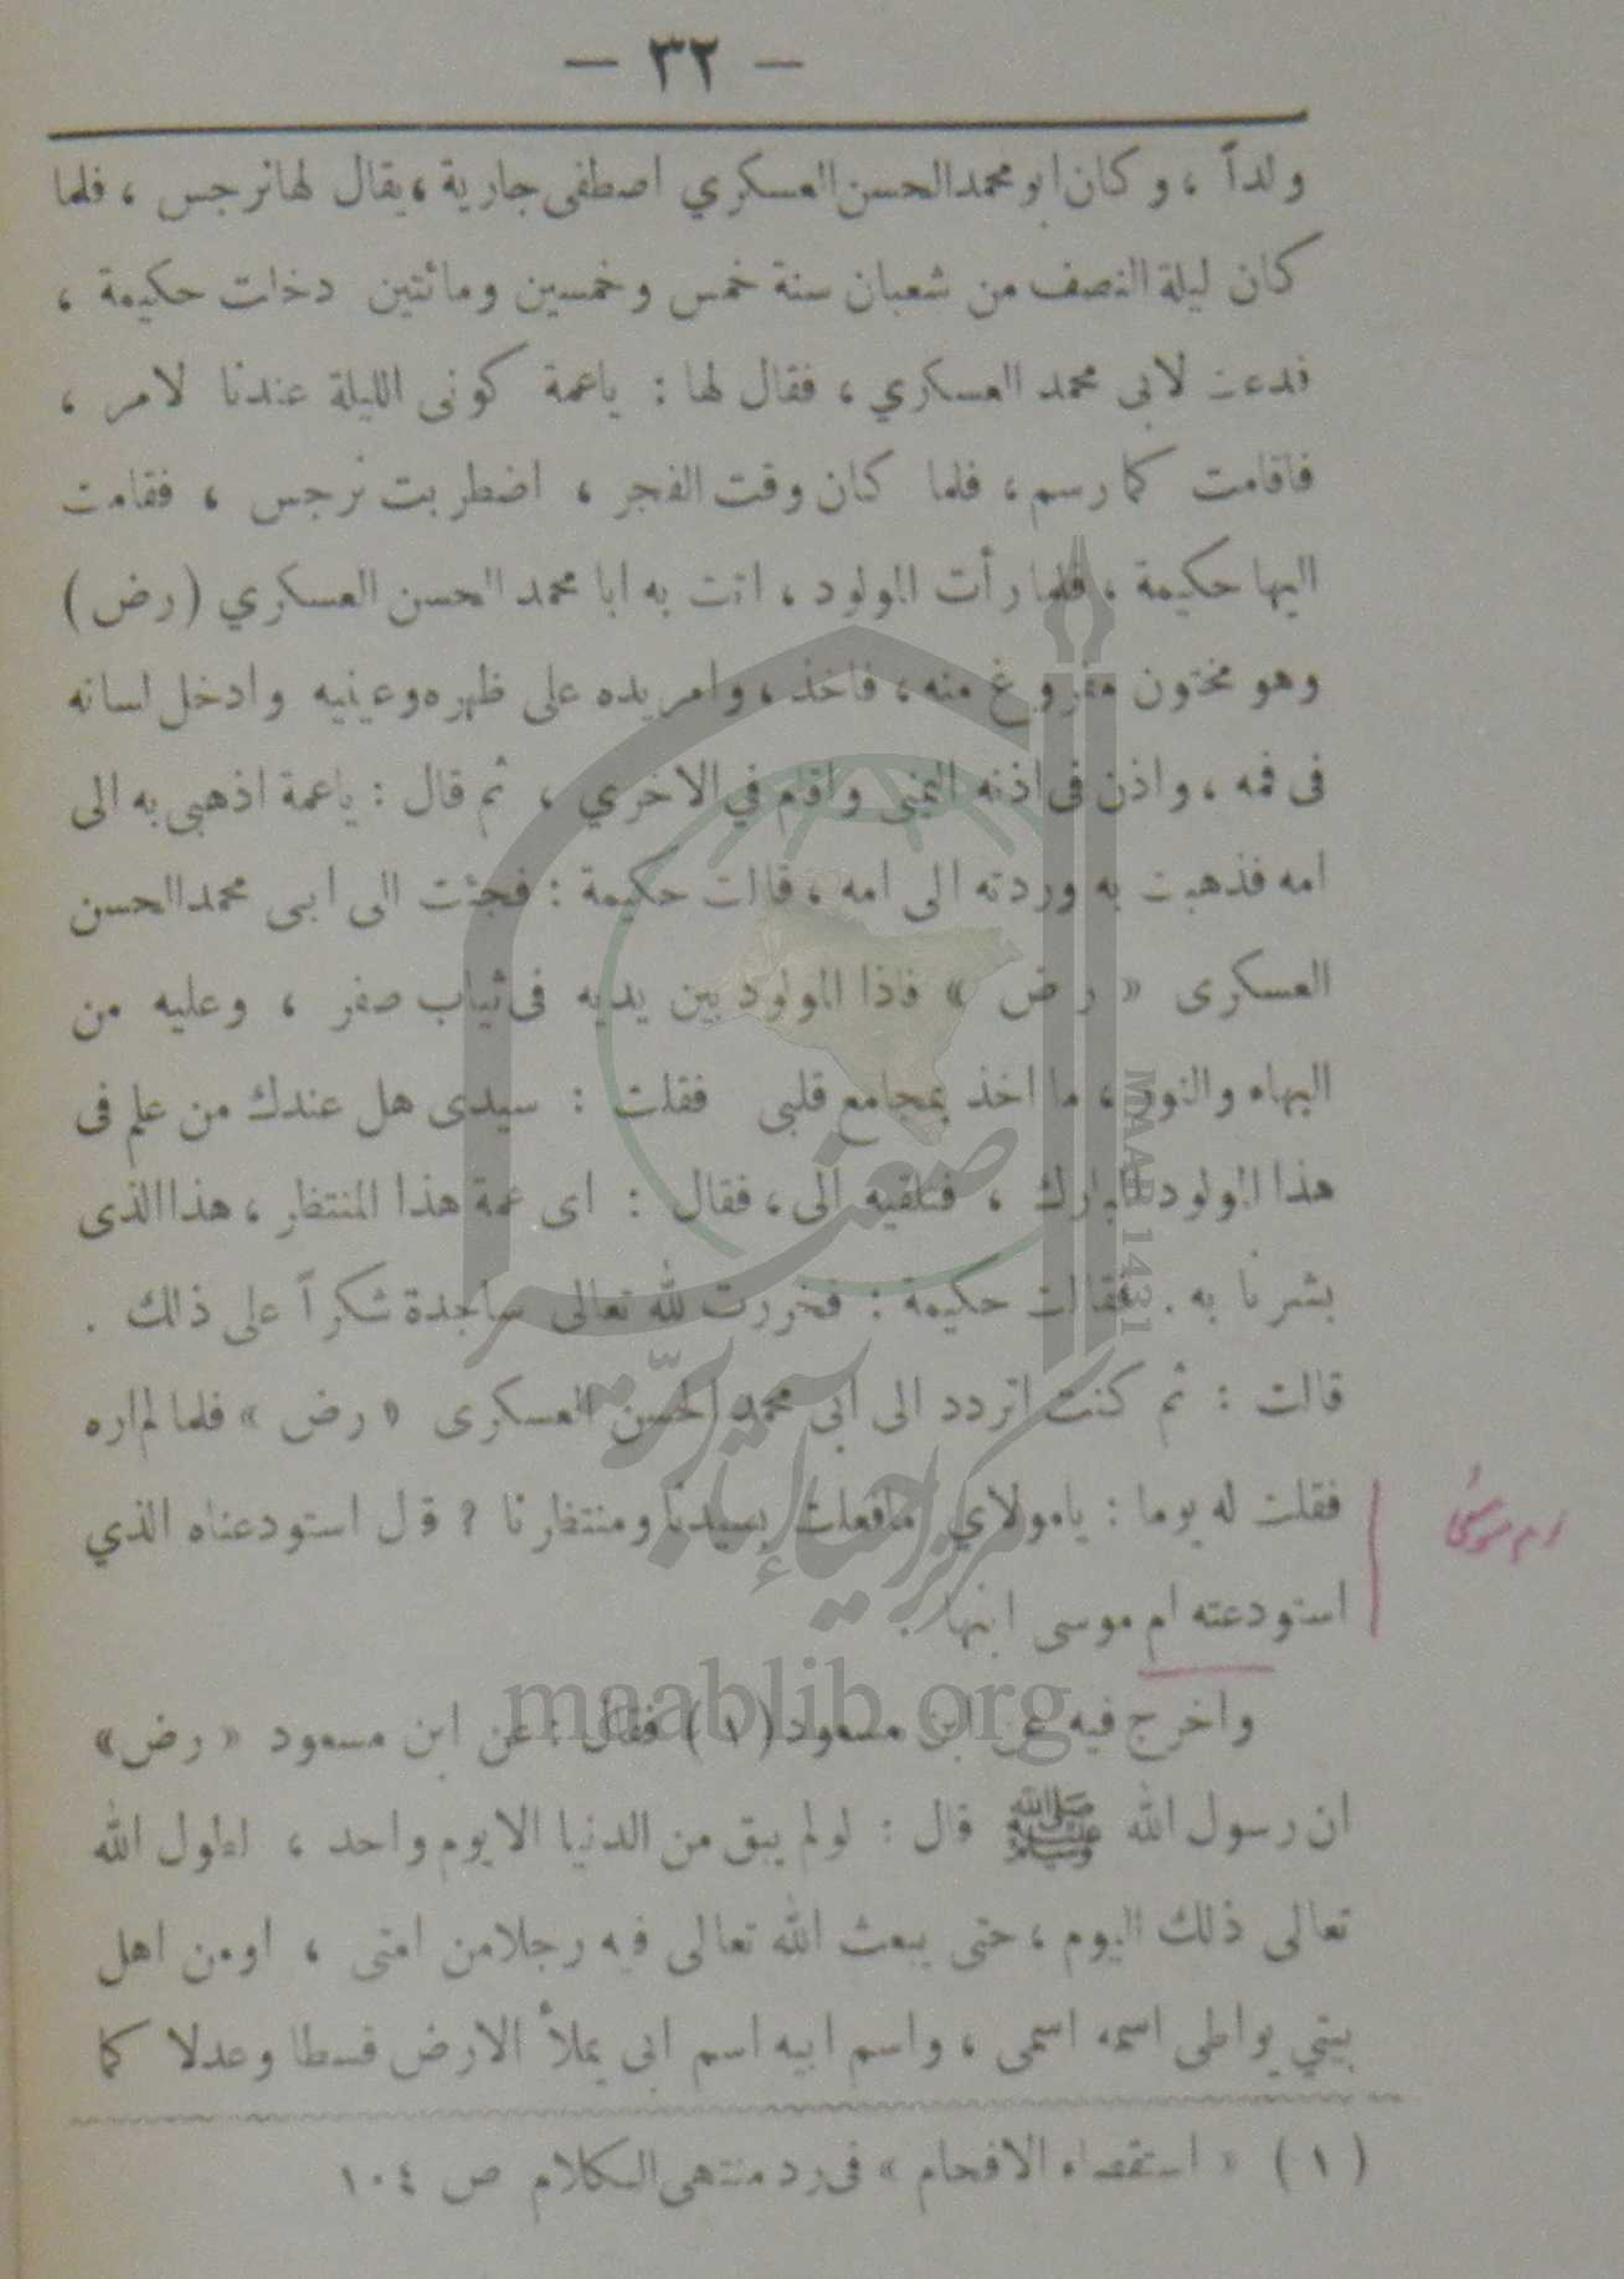 — ٣٢ —
ولداً ، وكان ابو محمد الحسن العسكري اصطفى جارية ، يقال لها نرجس ، فلما
كان ليلة النصف من شعبان سنة خمس وخمسين ومائتين دخلت حكيمة ،
فدعت لابى محمد العسكري ، فقال لها : ياعمة كونى الليلة عندنا لامر ،
فاقامت كما رسم ، فلما كان وقت الفجر ، اضطربت نرجس ، فقامت
اليها حكيمة ، فلما رأت المولود ، اتت به ابا محمد الحسن العسكري (رض)
وهو مختون مفروغ منه ، فاخذ ، وامر يده على ظهره وعينيه وادخل لسانه
فى فمه ، واذن فى اذنه اليمنى واقام في الاخري ، ثم قال : ياعمة اذهبى به الى
امه فذهبت به وردته الى امه ، قالت حكيمة : فجئت الى ابى محمد الحسن
العسكرى « رض » فاذا المولود بين يديه فى ثياب صفر ، وعليه من
البهاء والنور ، ما اخذ بمجامع قلبى فقلت : سيدى هل عندك من علم فى
هذا المولود المبارك ، فتلقيه الى ، فقال : اى عمة هذا المنتظر ، هذا الذى
بشرنا به . فقالت حكيمة : فخررت لله تعالى ساجدة شكراً على ذلك .
قالت : ثم كنت اتردد الى ابى محمد الحسن العسكرى « رض » فلما لم اره
فقلت له يوما : يامولاي مافعلت بسيدنا ومنتظرنا ؟ قال استودعناه الذي
استودعته ام موسى ابنها .
واخرج فيه عن ابن مسعود (١) فقال : عن ابن مسعود « رض »
ان رسول الله ﷺ قال : لولم يبق من الدنيا الا يوم واحد ، لطول الله
تعالى ذلك اليوم ، حتى يبعث الله تعالى فيه رجلا من امتى ، اومن اهل
بيتي يواطى اسمه اسمى ، واسم ابيه اسم ابى يملأ الارض قسطا وعدلا كما
(١) « استقصاء الافحام » فى رد منتهى الكلام ص ١٠٤
ام موسى
MAAB 1431
مركز احياء آثار بر صغير
maablib.org